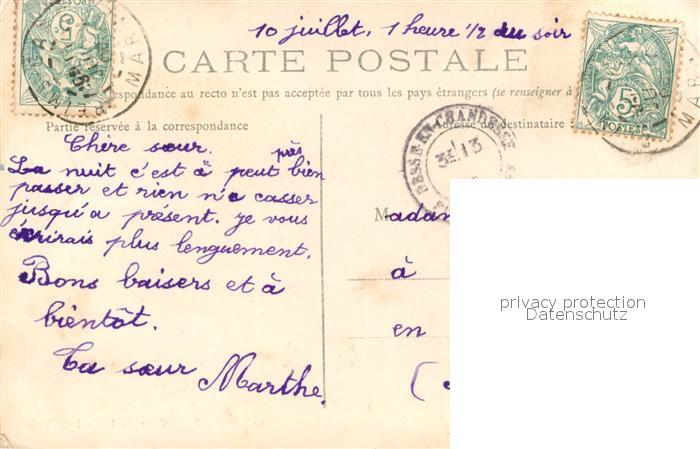 10 juillet, 1 heure 1/2 du soir
CARTE POSTALE
pondance au recto n'est pas acceptée par tous les pays étrangers (se renseigner à
Partie réservée à la correspondance
Adresse du destinataire
Chère sœur.
La nuit c'est à peut près bien
passer et rien n'a casser
jusqu'a présent. je vous
écrirais plus longuement.
Bons baisers et à
bientôt.
Ta sœur Marthe.
Madam
à
en
(
5c
POSTES
privacy protection
Datenschutz